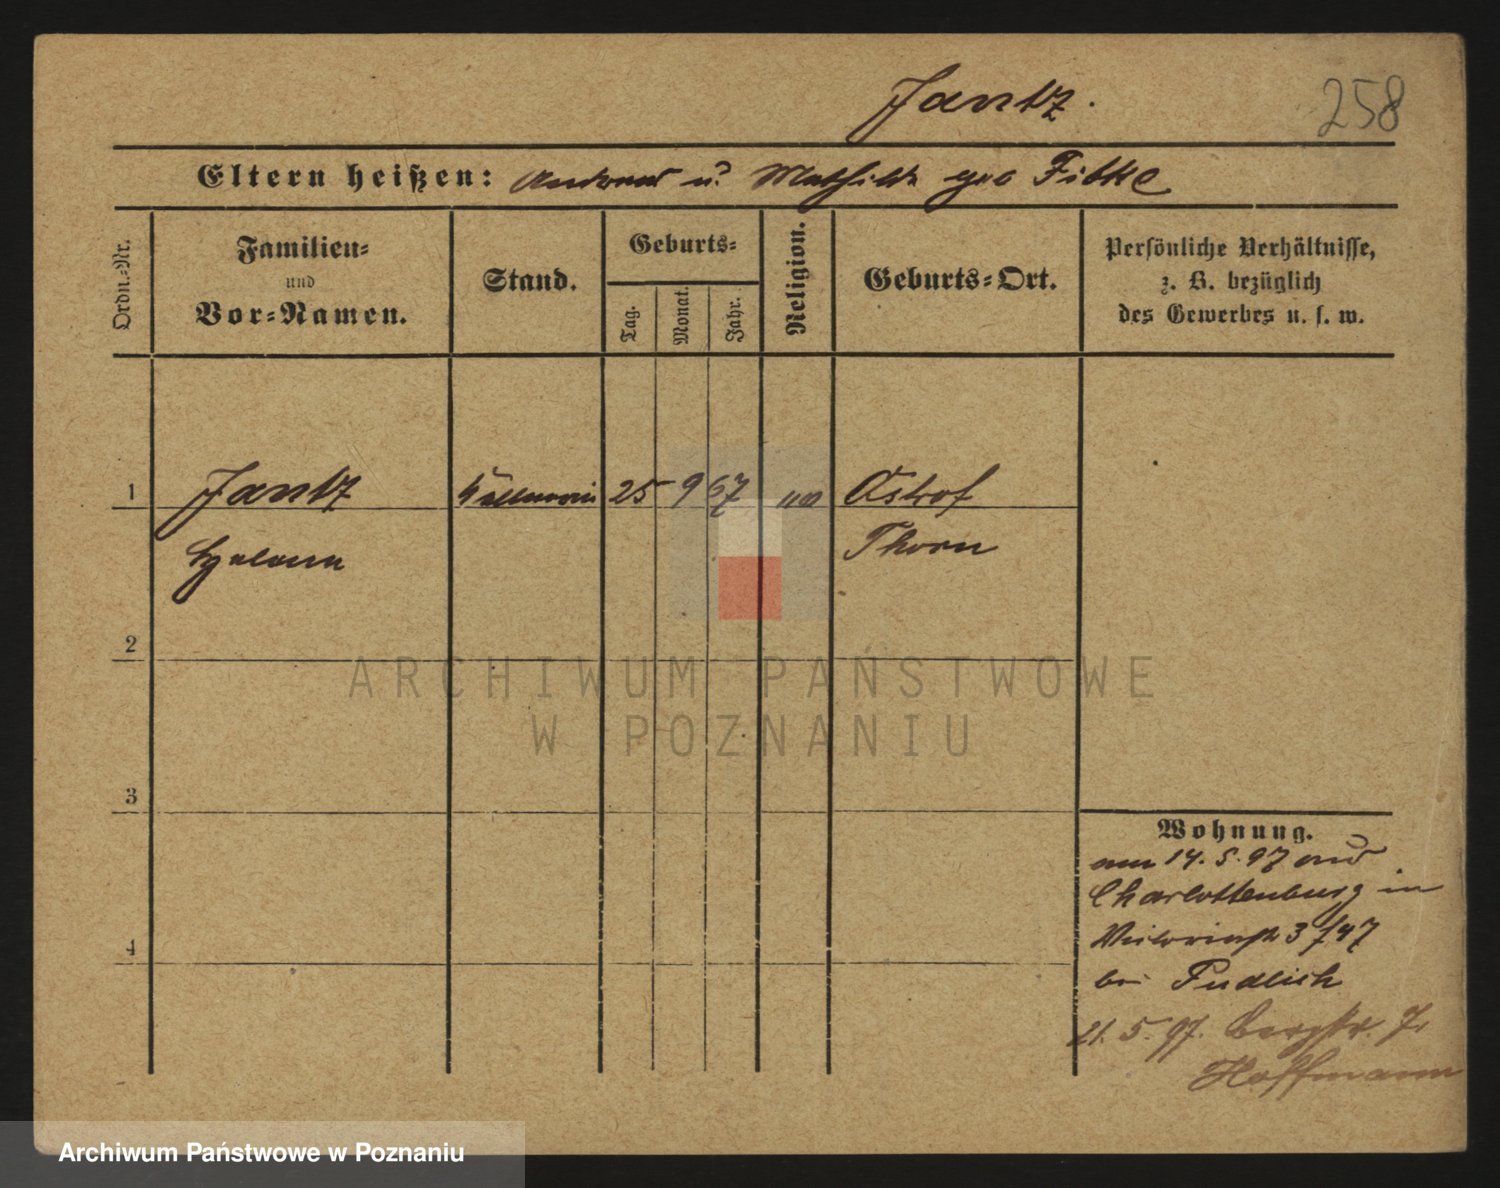 Jantz.
258
Eltern heißen: Andreas u. Mathilde geb Fibke
Ordn.-Nr.
Familien-
und
Vor-Namen.
Stand.
Geburts-
Tag.
Monat.
Jahr.
Religion.
Geburts-Ort.
Persönliche Verhältnisse,
z. B. bezüglich
des Gewerbes u. s. w.
1 Jantz 25 9 67
Thorn
2
3
4
ARCHIWUM PAŃSTWOWE
W POZNANIU
Wohnung.
am 14. 5. 97 aus
Charlottenburg in
3/47
bei Pudlich
21. 5. 97. Bergstr. 7,
Hoffmann
Archiwum Państwowe w Poznaniu